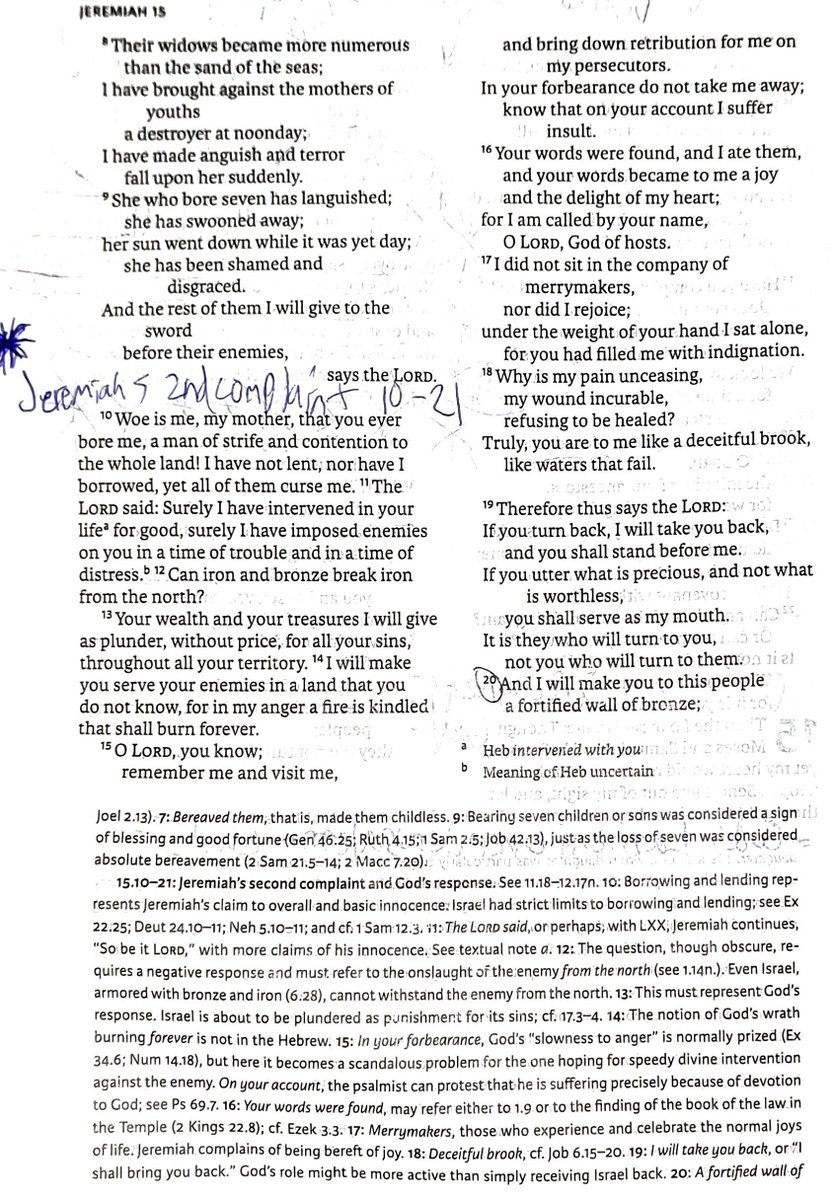 JEREMIAH 15
⁸ Their widows became more numerous
than the sand of the seas;
I have brought against the mothers of
youths
a destroyer at noonday;
I have made anguish and terror
fall upon her suddenly.
⁹ She who bore seven has languished;
she has swooned away;
her sun went down while it was yet day;
she has been shamed and
disgraced.
And the rest of them I will give to the
sword
before their enemies,
says the LORD.
Jeremiah's 2nd complaint 10-21
¹⁰ Woe is me, my mother, that you ever
bore me, a man of strife and contention to
the whole land! I have not lent, nor have I
borrowed, yet all of them curse me. ¹¹ The
LORD said: Surely I have intervened in your
lifeᵃ for good, surely I have imposed enemies
on you in a time of trouble and in a time of
distress.ᵇ ¹² Can iron and bronze break iron
from the north?
¹³ Your wealth and your treasures I will give
as plunder, without price, for all your sins,
throughout all your territory. ¹⁴ I will make
you serve your enemies in a land that you
do not know, for in my anger a fire is kindled
that shall burn forever.
¹⁵ O LORD, you know;
remember me and visit me,
and bring down retribution for me on
my persecutors.
In your forbearance do not take me away;
know that on your account I suffer
insult.
¹⁶ Your words were found, and I ate them,
and your words became to me a joy
and the delight of my heart;
for I am called by your name,
O LORD, God of hosts.
¹⁷ I did not sit in the company of
merrymakers,
nor did I rejoice;
under the weight of your hand I sat alone,
for you had filled me with indignation.
¹⁸ Why is my pain unceasing,
my wound incurable,
refusing to be healed?
Truly, you are to me like a deceitful brook,
like waters that fail.
¹⁹ Therefore thus says the LORD:
If you turn back, I will take you back,
and you shall stand before me.
If you utter what is precious, and not what
is worthless,
you shall serve as my mouth.
It is they who will turn to you,
not you who will turn to them.
²⁰ And I will make you to this people
a fortified wall of bronze;
a Heb intervened with you
b Meaning of Heb uncertain
Joel 2.13). 7: Bereaved them, that is, made them childless. 9: Bearing seven children or sons was considered a sign
of blessing and good fortune (Gen 46.25; Ruth 4.15; 1 Sam 2.5; Job 42.13), just as the loss of seven was considered
absolute bereavement (2 Sam 21.5–14; 2 Macc 7.20).
15.10–21: Jeremiah's second complaint and God's response. See 11.18–12.17n. 10: Borrowing and lending rep-
resents Jeremiah's claim to overall and basic innocence. Israel had strict limits to borrowing and lending; see Ex
22.25; Deut 24.10–11; Neh 5.10–11; and cf. 1 Sam 12.3. 11: The LORD said, or perhaps, with LXX, Jeremiah continues,
"So be it LORD," with more claims of his innocence. See textual note a. 12: The question, though obscure, re-
quires a negative response and must refer to the onslaught of the enemy from the north (see 1.14n.). Even Israel,
armored with bronze and iron (6.28), cannot withstand the enemy from the north. 13: This must represent God's
response. Israel is about to be plundered as punishment for its sins; cf. 17.3–4. 14: The notion of God's wrath
burning forever is not in the Hebrew. 15: In your forbearance, God's "slowness to anger" is normally prized (Ex
34.6; Num 14.18), but here it becomes a scandalous problem for the one hoping for speedy divine intervention
against the enemy. On your account, the psalmist can protest that he is suffering precisely because of devotion
to God; see Ps 69.7. 16: Your words were found, may refer either to 1.9 or to the finding of the book of the law in
the Temple (2 Kings 22.8); cf. Ezek 3.3. 17: Merrymakers, those who experience and celebrate the normal joys
of life. Jeremiah complains of being bereft of joy. 18: Deceitful brook, cf. Job 6.15–20. 19: I will take you back, or "I
shall bring you back." God's role might be more active than simply receiving Israel back. 20: A fortified wall of